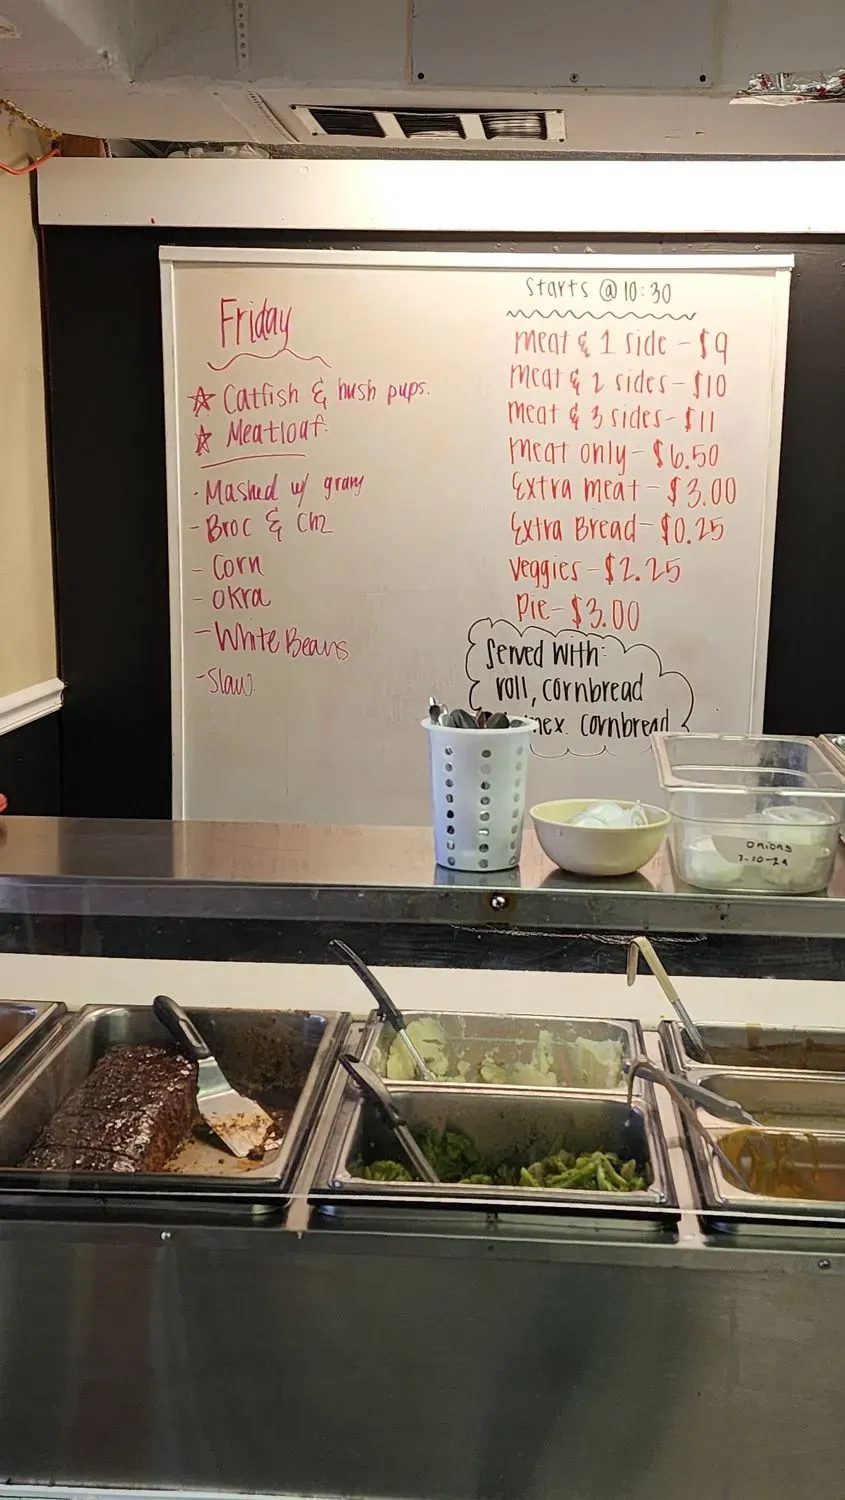 Friday
☆ Catfish & hush pups.
☆ Meatloaf.
- Mashed w/ gravy
- Broc & Chz
- Corn
- Okra
- White Beans
- Slaw.
Starts @ 10:30
Meat & 1 side - $9
Meat & 2 sides - $10
Meat & 3 sides - $11
Meat only - $6.50
Extra meat - $3.00
Extra Bread - $0.25
Veggies - $2.25
Pie - $3.00
Served With:
roll, cornbread
mex. cornbread
Onions